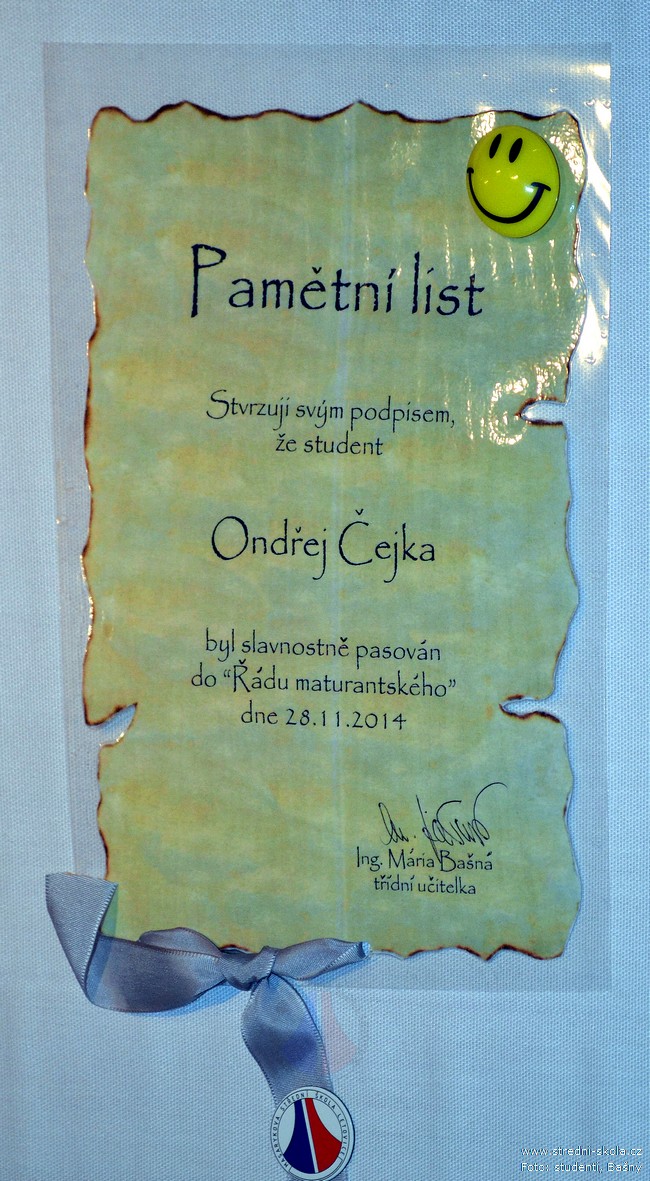 Pamětní list
Stvrzuji svým podpisem,
že student
Ondřej Čejka
byl slavnostně pasován
do “Řádu maturantského”
dne 28.11.2014
Ing. Mária Bašná
třídní učitelka
MASARYKOVA STŘEDNÍ ŠKOLA LETOVICE
www.stredni-skola.cz
Foto: studenti, Bašný